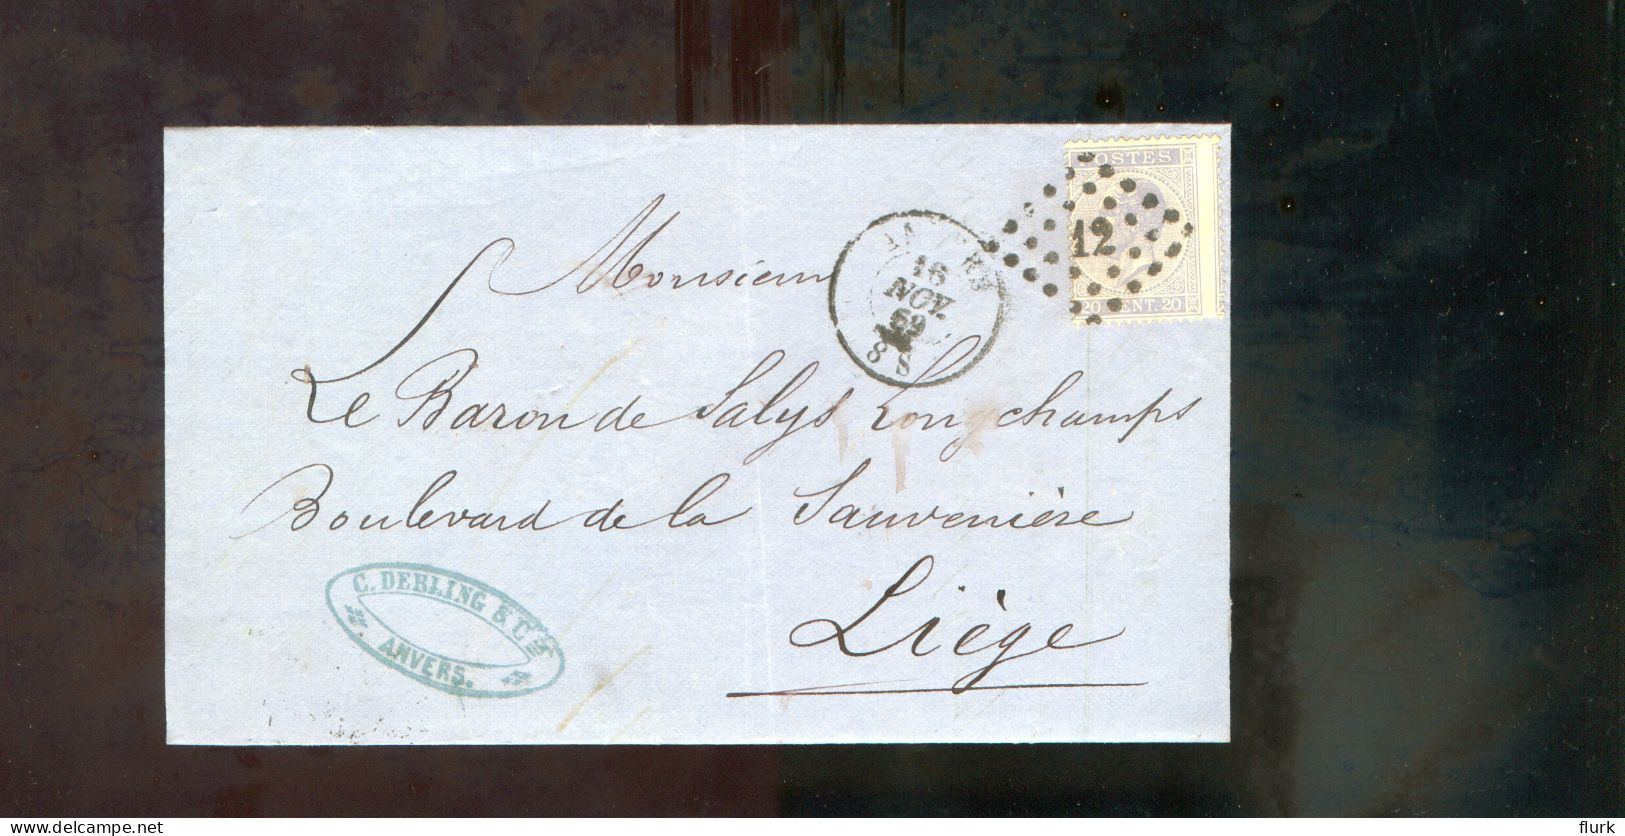 POSTES
12
20 CENT. 20
16
NOV.
69
8 S
Monsieur
Le Baron de Salys Longchamps
Boulevard de la Sauvenière
Liège
C. DERLING & Cie
ANVERS.
delcampe.net
flurk